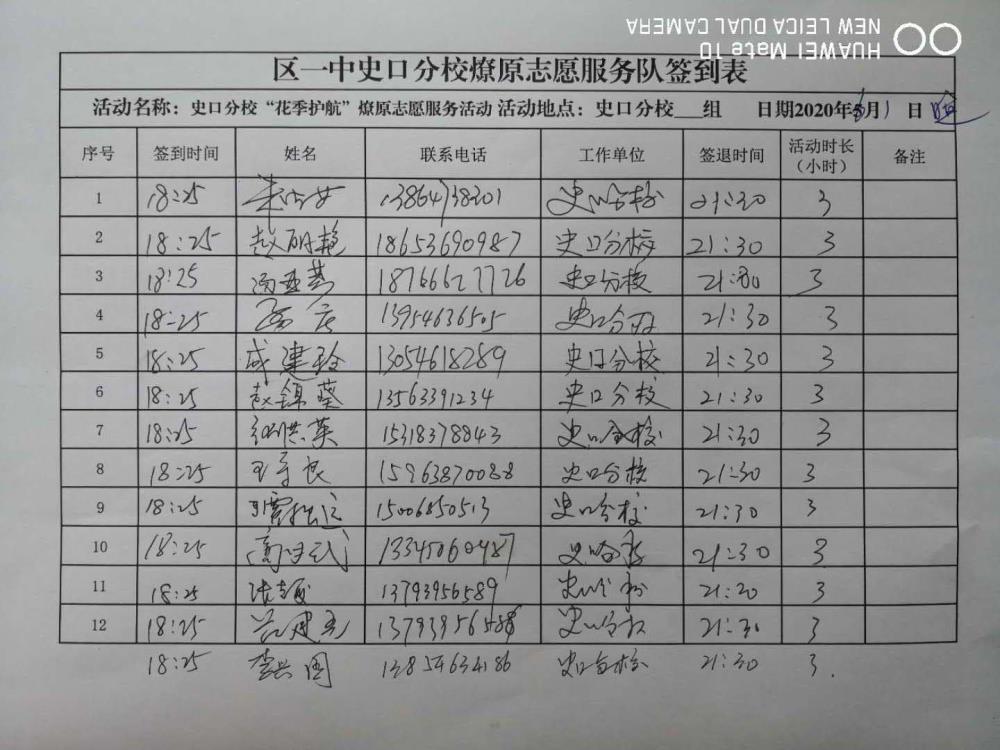 HUAWEI Mate 10
NEW LEICA DUAL CAMERA
区一中史口分校燎原志愿服务队签到表
活动名称：史口分校“花季护航”燎原志愿服务活动 活动地点：史口分校___组 日期2020年 月1日
序号 签到时间 姓名 联系电话 工作单位 签退时间 活动时长（小时） 备注
1 18:25 13864738201 史口分校 21:30 3
2 18:25 赵丽艳 18653690987 史口分校 21:30 3
3 18:25 18766627726 史口分校 21:30 3
4 18:25 13954636505 史口分校 21:30 3
5 18:25 成建玲 13054618289 史口分校 21:30 3
6 18:25 赵锦葵 13563391234 史口分校 21:30 3
7 18:25 15318378843 史口分校 21:30 3
8 18:25 王守良 15963870088 史口分校 21:30 3
9 18:25 15006850513 史口分校 21:30 3
10 18:25 13345060487 史口分校 21:30 3
11 18:25 13793956589 史口分校 21:20 3
12 18:25 史口分校 21:30 3
18:25 李兴国 13854634186 史口分校 21:30 3.